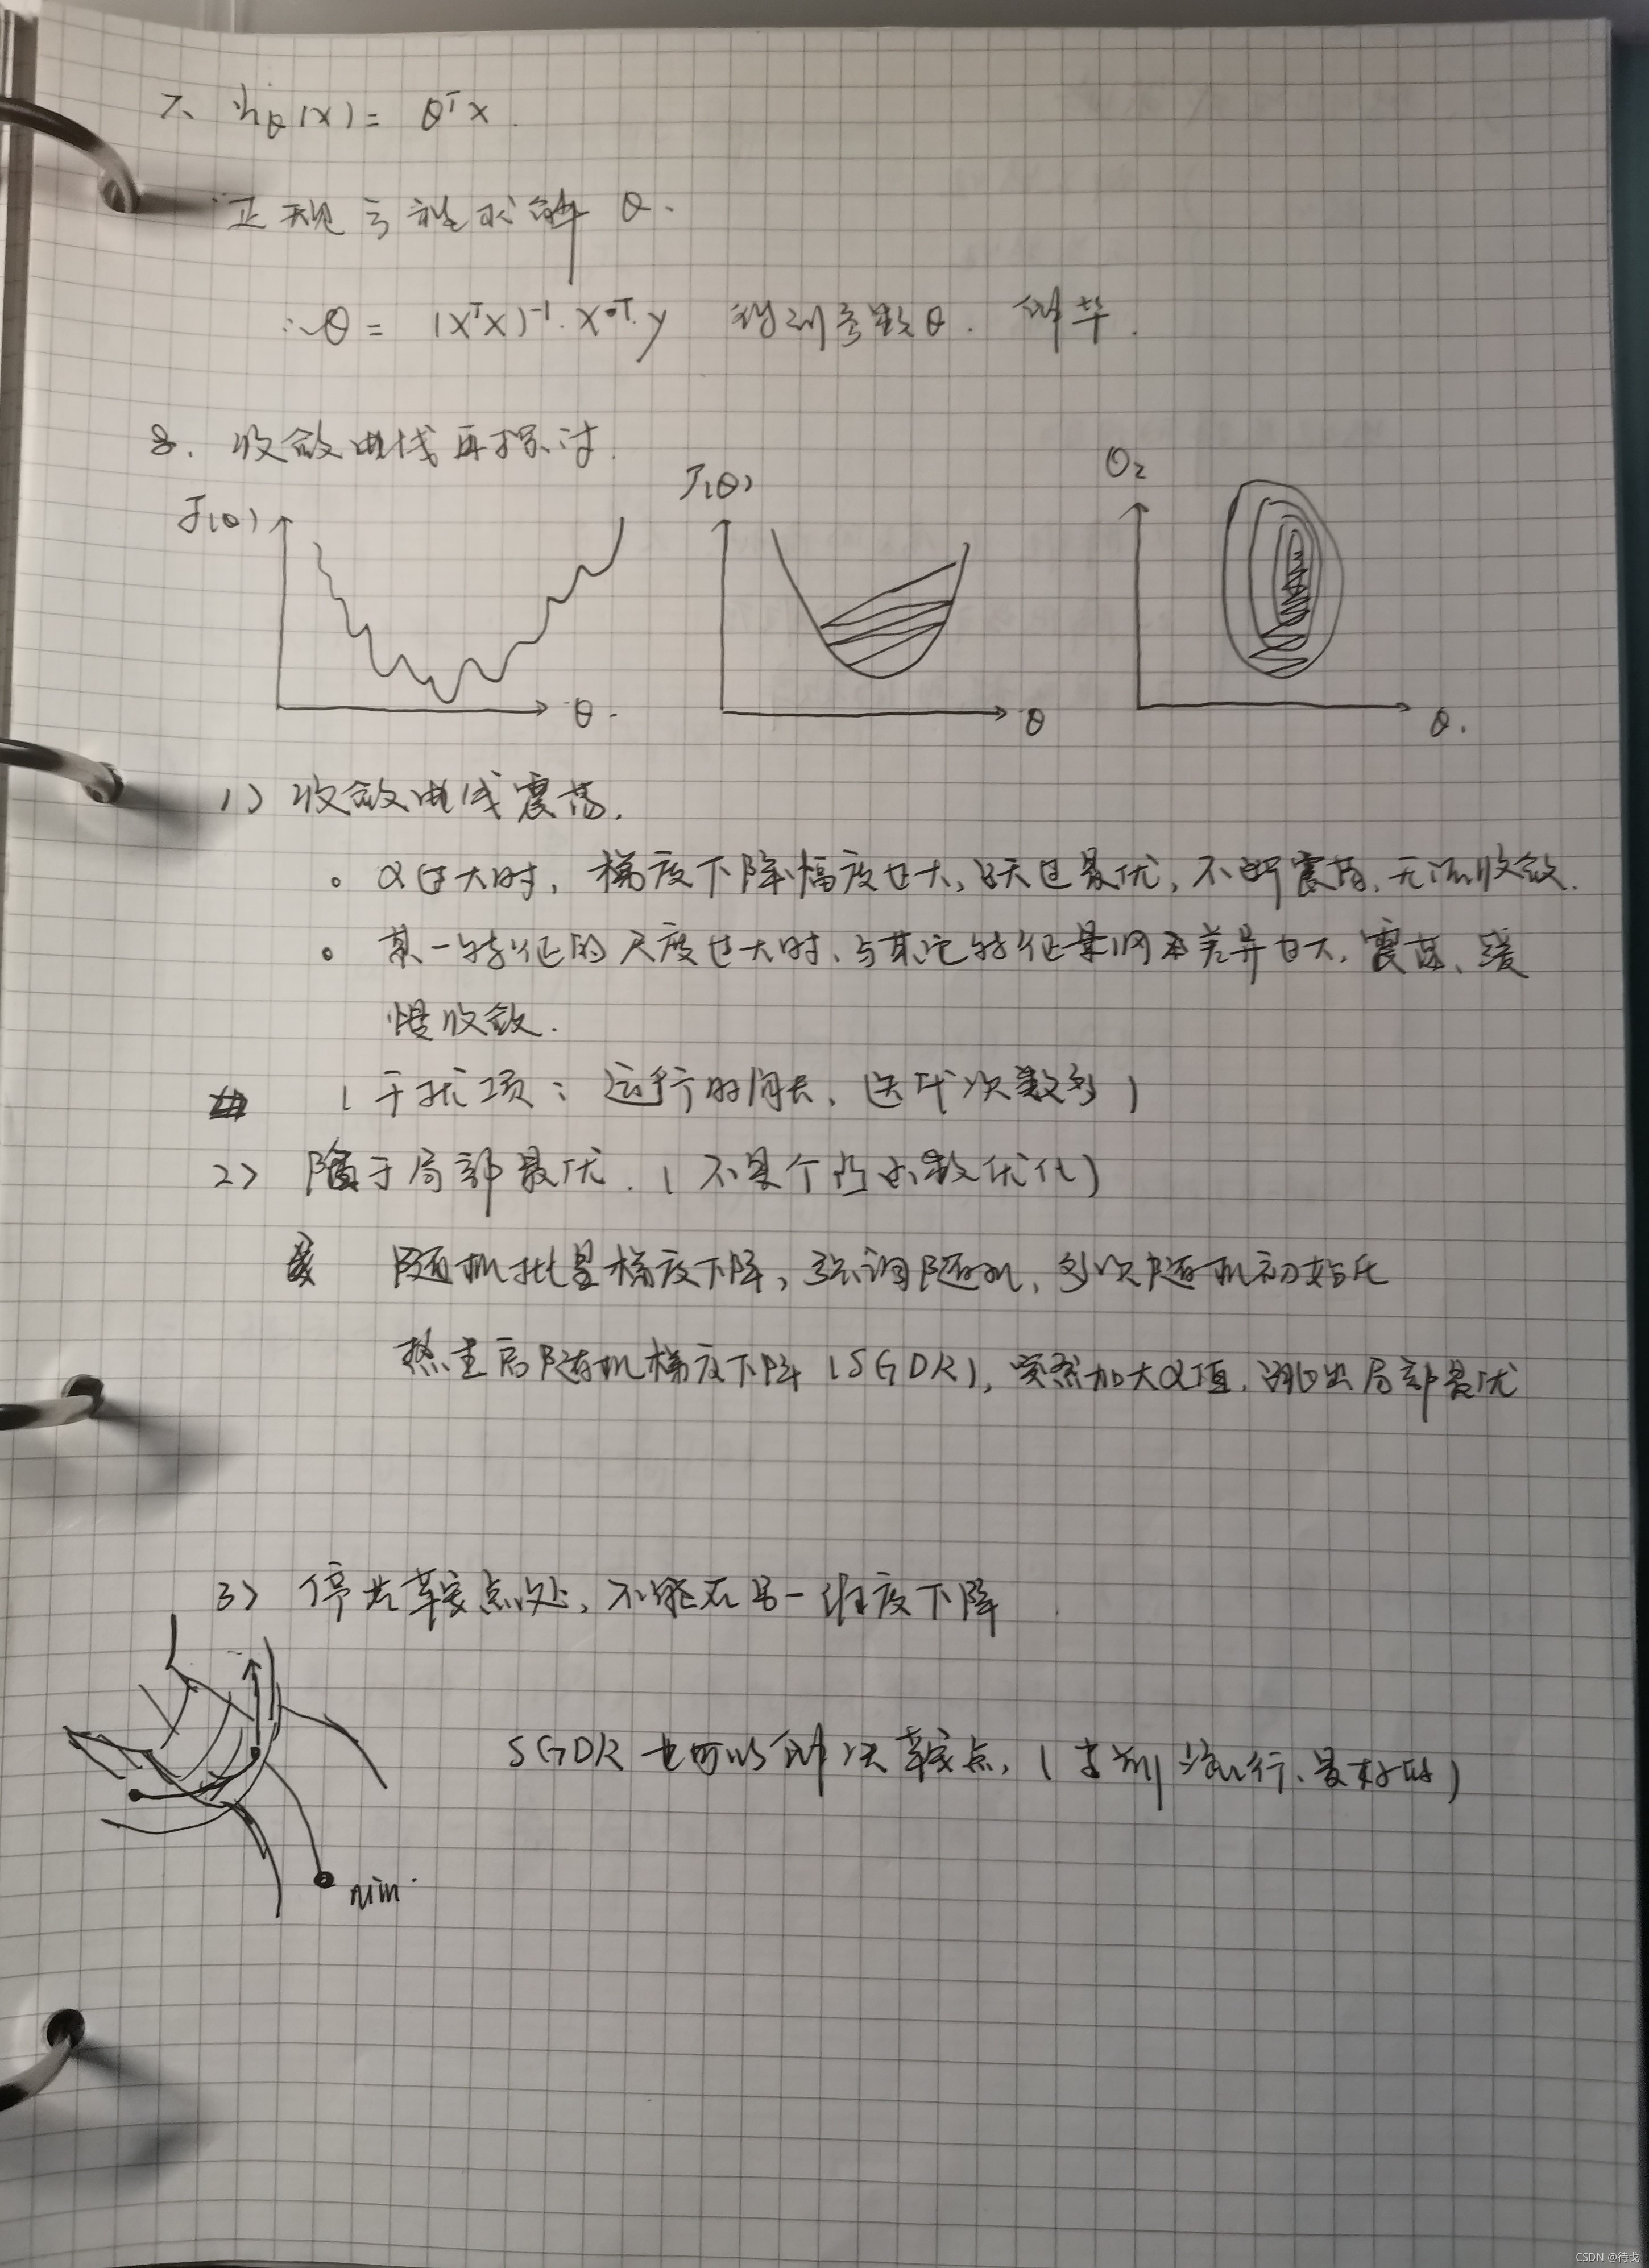 不 hθ(x) = θᵀx.
正规方程求解 θ.
∴ θ = (XᵀX)⁻¹·Xᵀ·y 得到参数θ. 解毕.
8. 收敛曲线再探讨.
J(θ) J(θ) θ₂
θ. θ θ.
1) 收敛曲线震荡.
。α过大时, 梯度下降幅度过大, 跃过最优, 不断震荡, 无法收敛.
。某一特征的尺度过大时, 与其它特征量纲差异过大, 震荡、缓
慢收敛.
(干扰项: 运行时间长, 迭代次数多)
2) 陷于局部最优. (不是个凸函数优化)
随机批量梯度下降, 强调随机, 多次随机初始化
热重启随机梯度下降 (SGDR), 突然加大α值, 跳出局部最优
3) 停在鞍点处, 不能在另一维度下降
SGDR 也可以解决鞍点, (最好的)
min.
CSDN @待戈